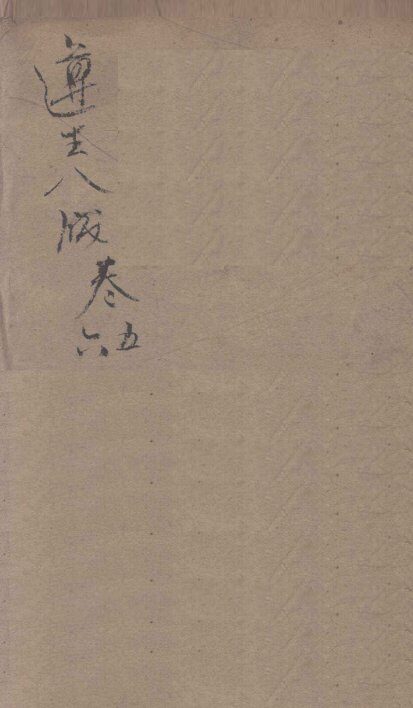 遵生八牋卷
五
六